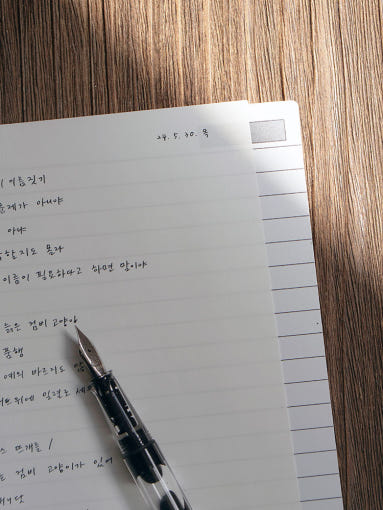 24. 5. 30. 목
이름짓기
문제가 아니야
아냐
할지도 몰라
이름이 필요하다고 하면 말이야
늙은 검비 고양이
품행
예의 바르지도
뜨개를 /
검비 고양이가 있어